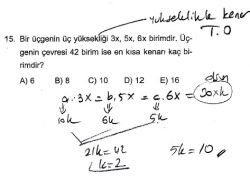 yükseklikle kenar
T.O
15. Bir üçgenin üç yüksekliği 3x, 5x, 6x birimdir. Üç-
genin çevresi 42 birim ise en kısa kenarı kaç bi-
rimdir?
A) 6 B) 8 C) 10 D) 12 E) 16
a.3x = b.5x = c.6x = 30xk
10k 6k 5k
21k = 42
k = 2
5k = 10